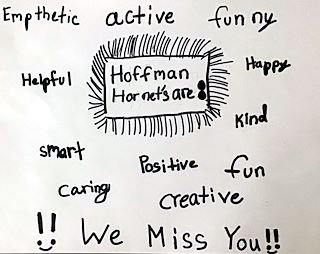 Empthetic active funny
Helpful Hoffman Happy
Hornet's are:
Kind
smart Positive fun
Caring creative
!! We Miss You!!